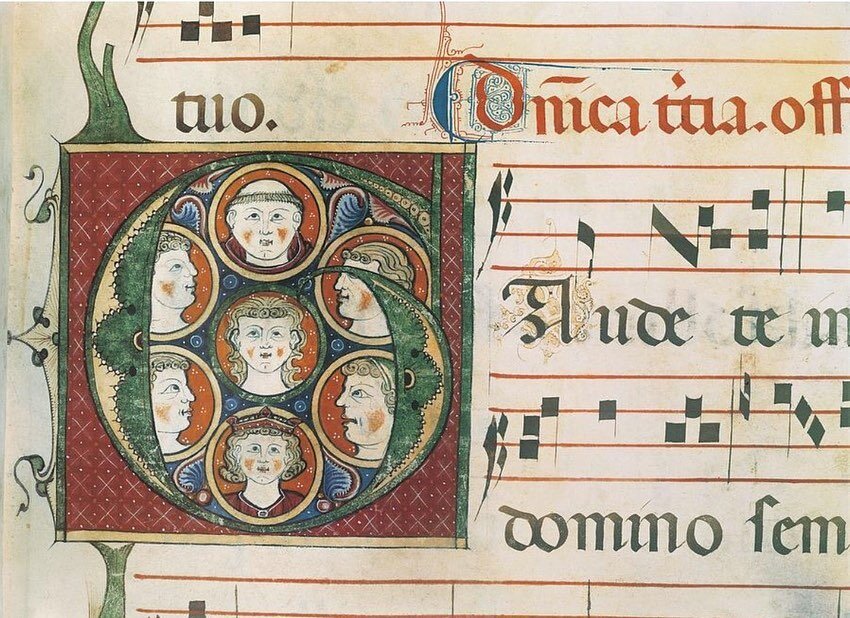 tuo. Dn̄ica tc̄ia. off
GAude te in
domino ſem